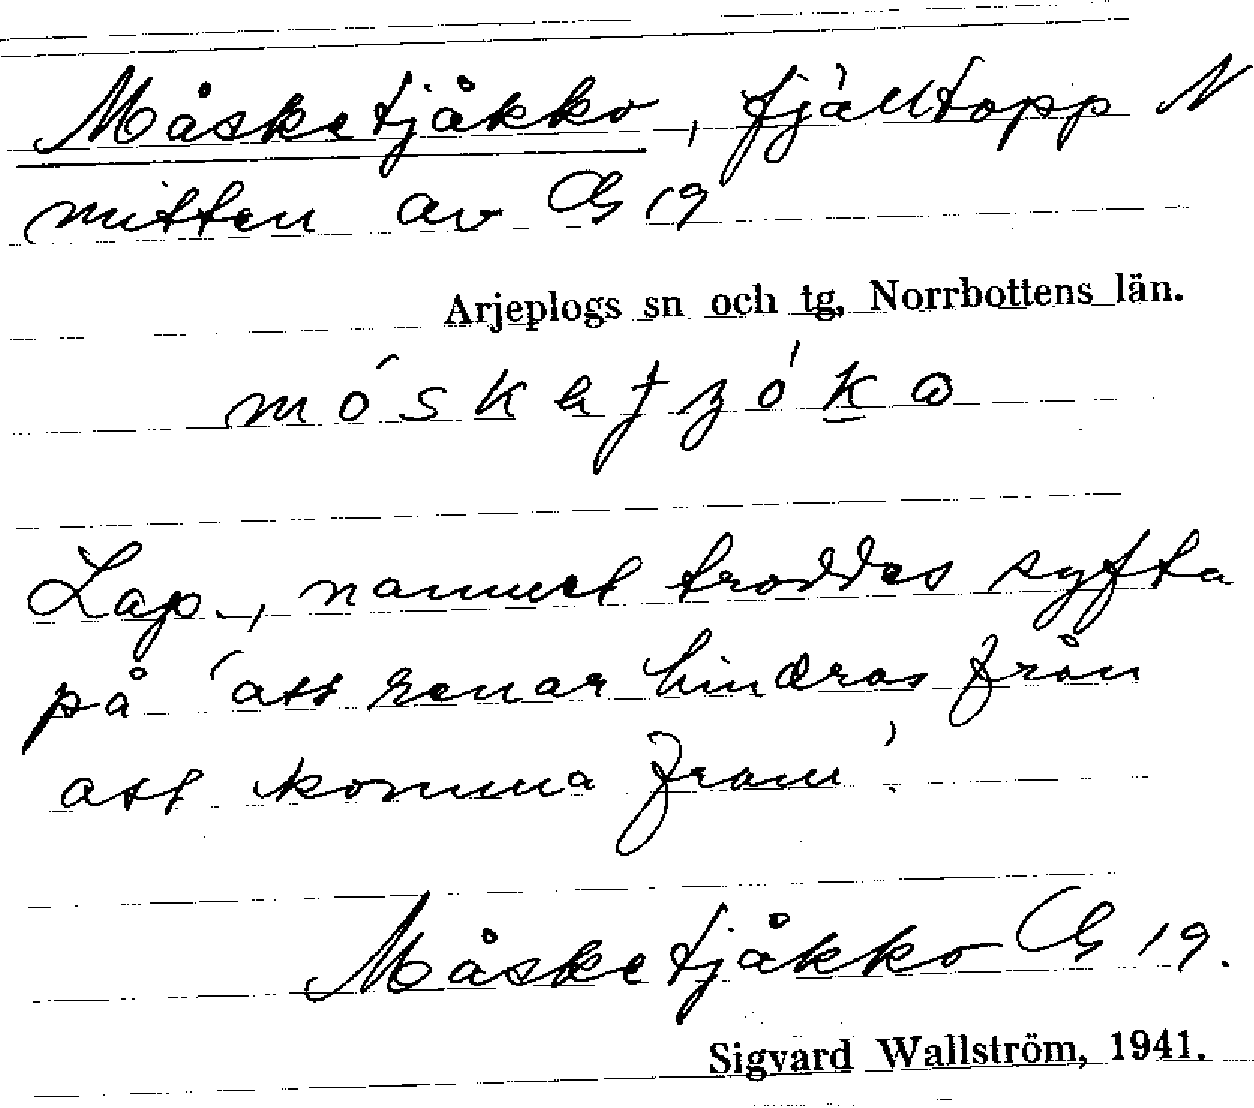 Måsketjåkko, fjälltopp N
mitten av G 19
Arjeplogs sn och tg, Norrbottens län.
Lap., namnet troddes syfta
på 'att renar hindras från
att komma fram'.
Måsketjåkko G 19.
Sigvard Wallström, 1941.